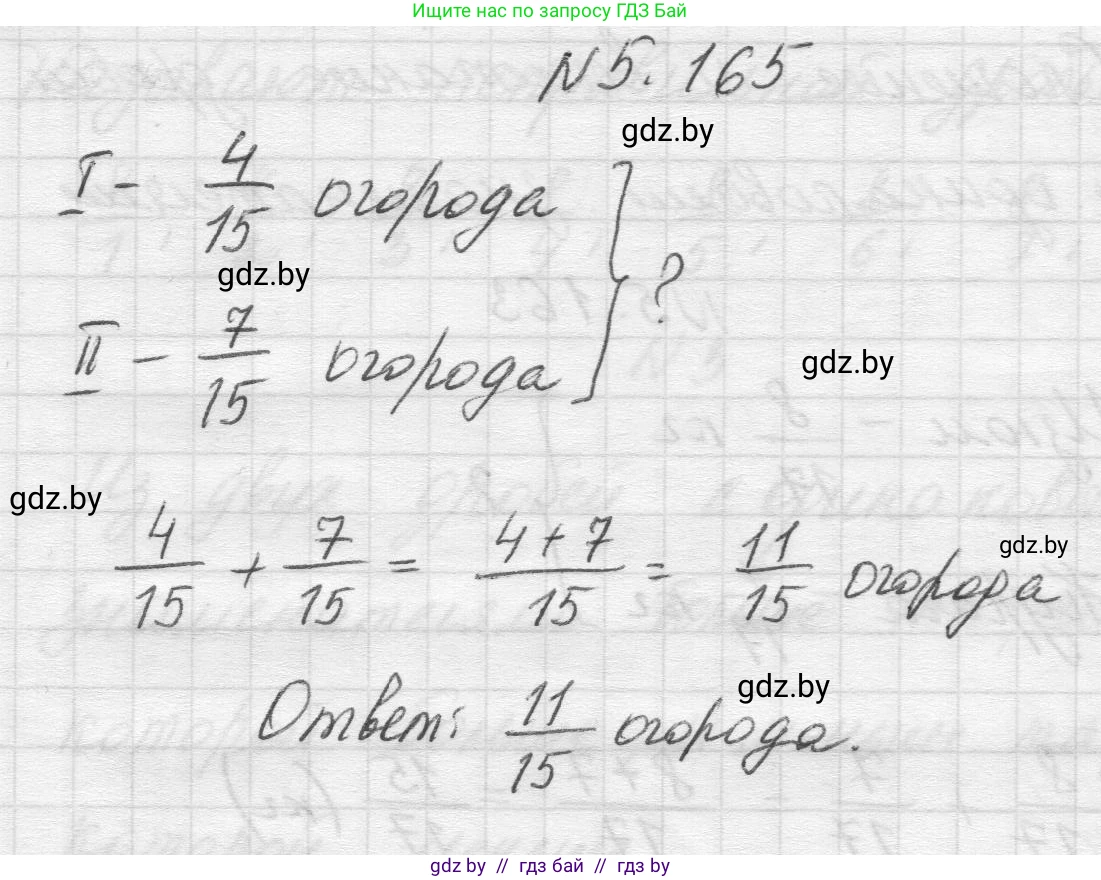 Ищите нас по запросу ГДЗ Бай
N 5. 165
gdz.by
I - 4/15 огорода
gdz.by
?
II - 7/15 огорода
gdz.by
gdz.by
4/15 + 7/15 = 4+7/15 = 11/15 огорода
gdz.by
Ответ: 11/15 огорода.
gdz.by
gdz by // гдз бай // гдз by